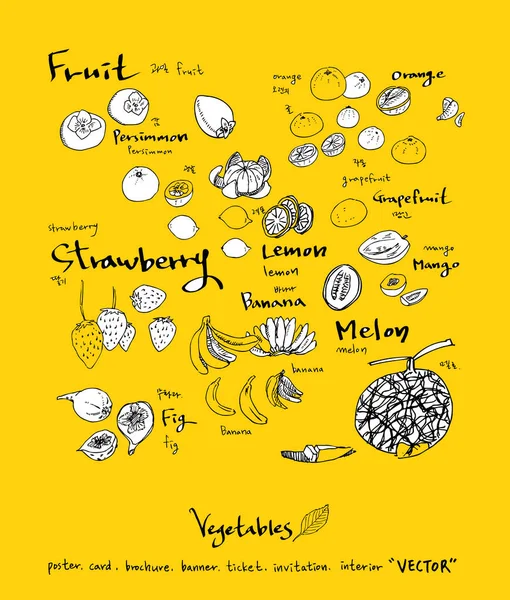 Fruit 과일 fruit
orange
오렌지
귤
Orange
감
Persimmon
Persimmon
자몽
grapefruit
Grapefruit
레몬
strawberry
Strawberry
딸기
Lemon
lemon
망고
mango
Mango
바나나
Banana
Melon
melon
멜론
banana
무화과
Fig
fig
Banana
Vegetables
poster. card. brochure. banner. ticket. invitation. interior "VECTOR"